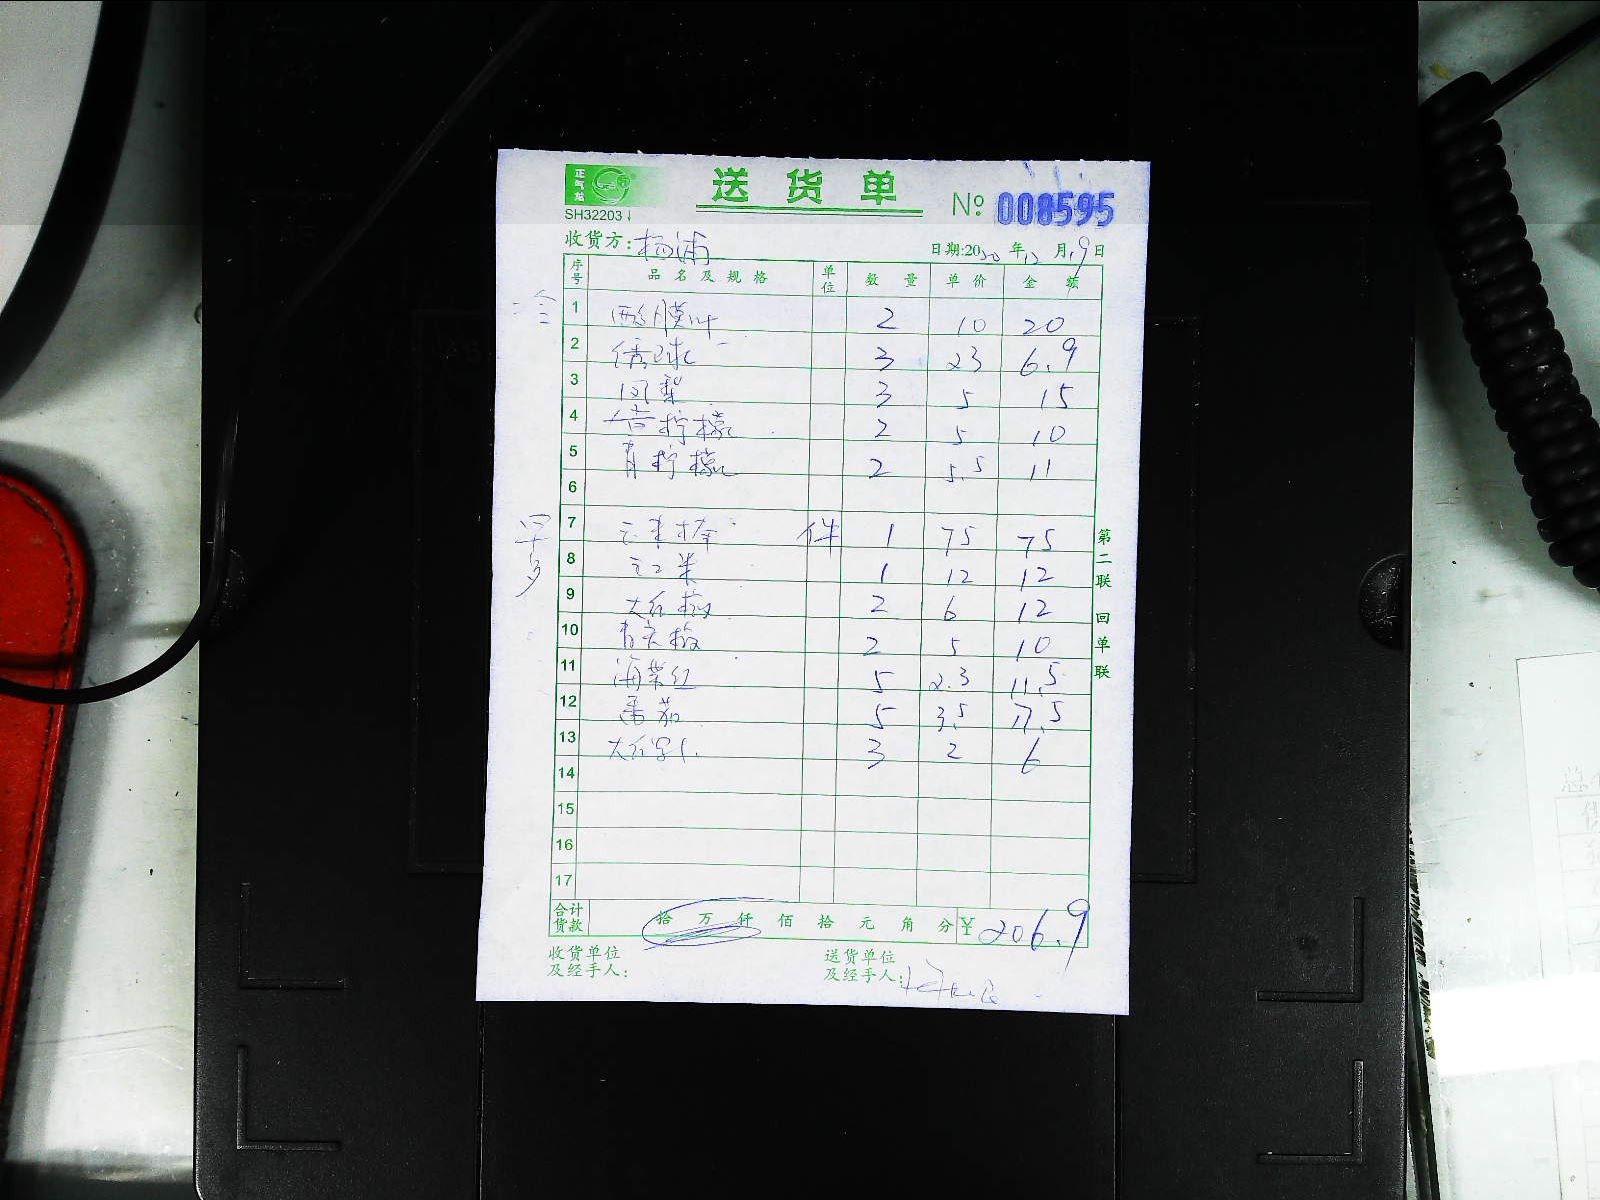 正气龙
SH32203
送货单
№ 008595
收货方: 杨浦
日期:2020年12月19日
序号 品名及规格 单位 数量 单价 金额
1 2 10 20
2 绣球 3 23 6.9
3 凤梨 3 5 15
4 柠檬 2 5 10
5 青柠檬 2 5.5 11
6
7 件 1 75 75
8 1 12 12
9 大红椒 2 6 12
10 青尖椒 2 5 10
11 5 2.3 11.5
12 番茄 5 3.5 17.5
13 3 2 6
14
15
16
17
合计货款 拾万仟佰拾元角分 ¥206.9
收货单位及经手人:
送货单位及经手人:
第二联 回单联